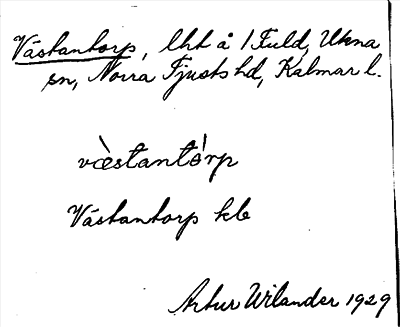 Västantorp, lht å 1 Fuld, Ukna
sn, Norra Tjusts hd, Kalmar l.
væ̀stantórp
Västantorp klb
Artur Wilander 1929